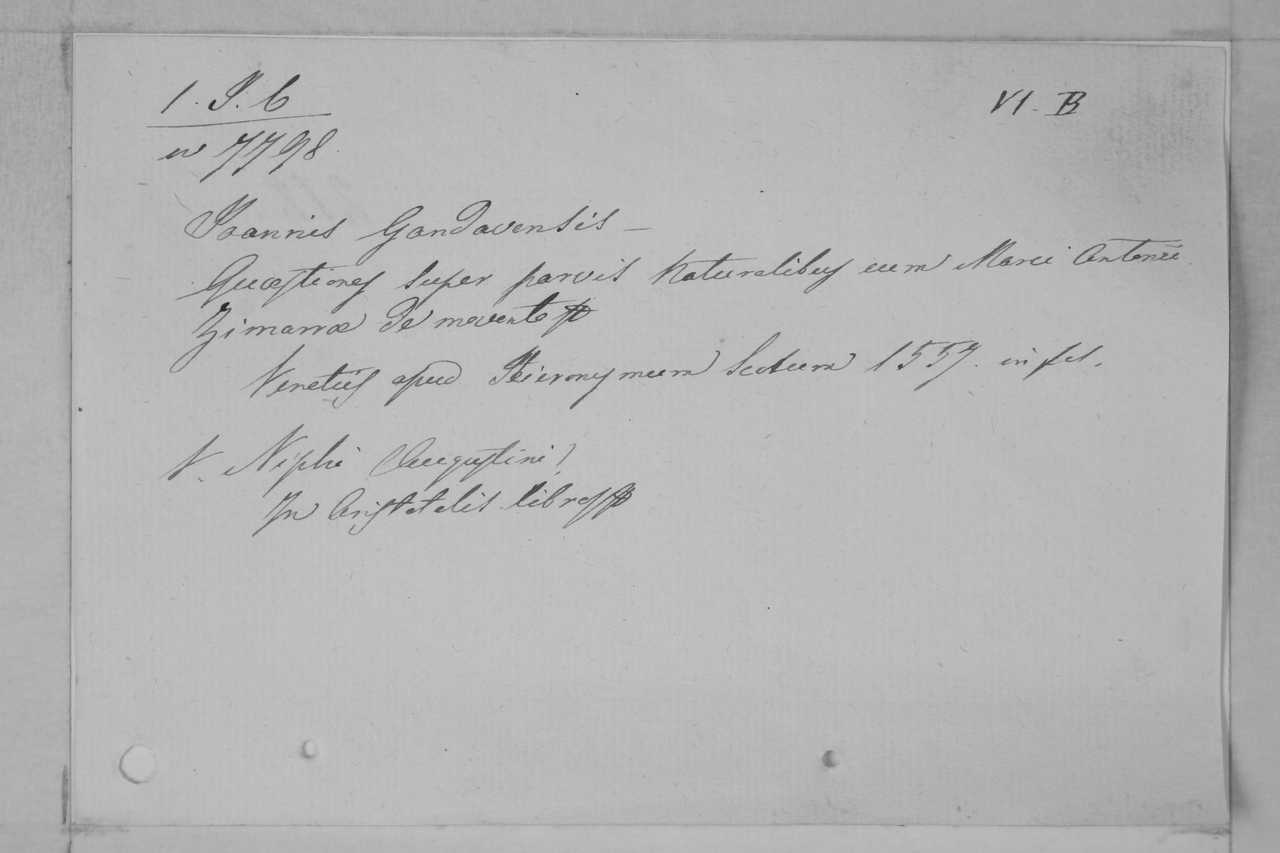 1. J. 6 VI. B
w 7798.
Joannis Gandavensis –
Quæstiones super parvis Naturalibus cum Marci Antonii
Zimarræ de movente
Venetiis apud Hieronymum Scotum 1557. in fol.
V. Niphi (Augustini)
In Aristotelis libros